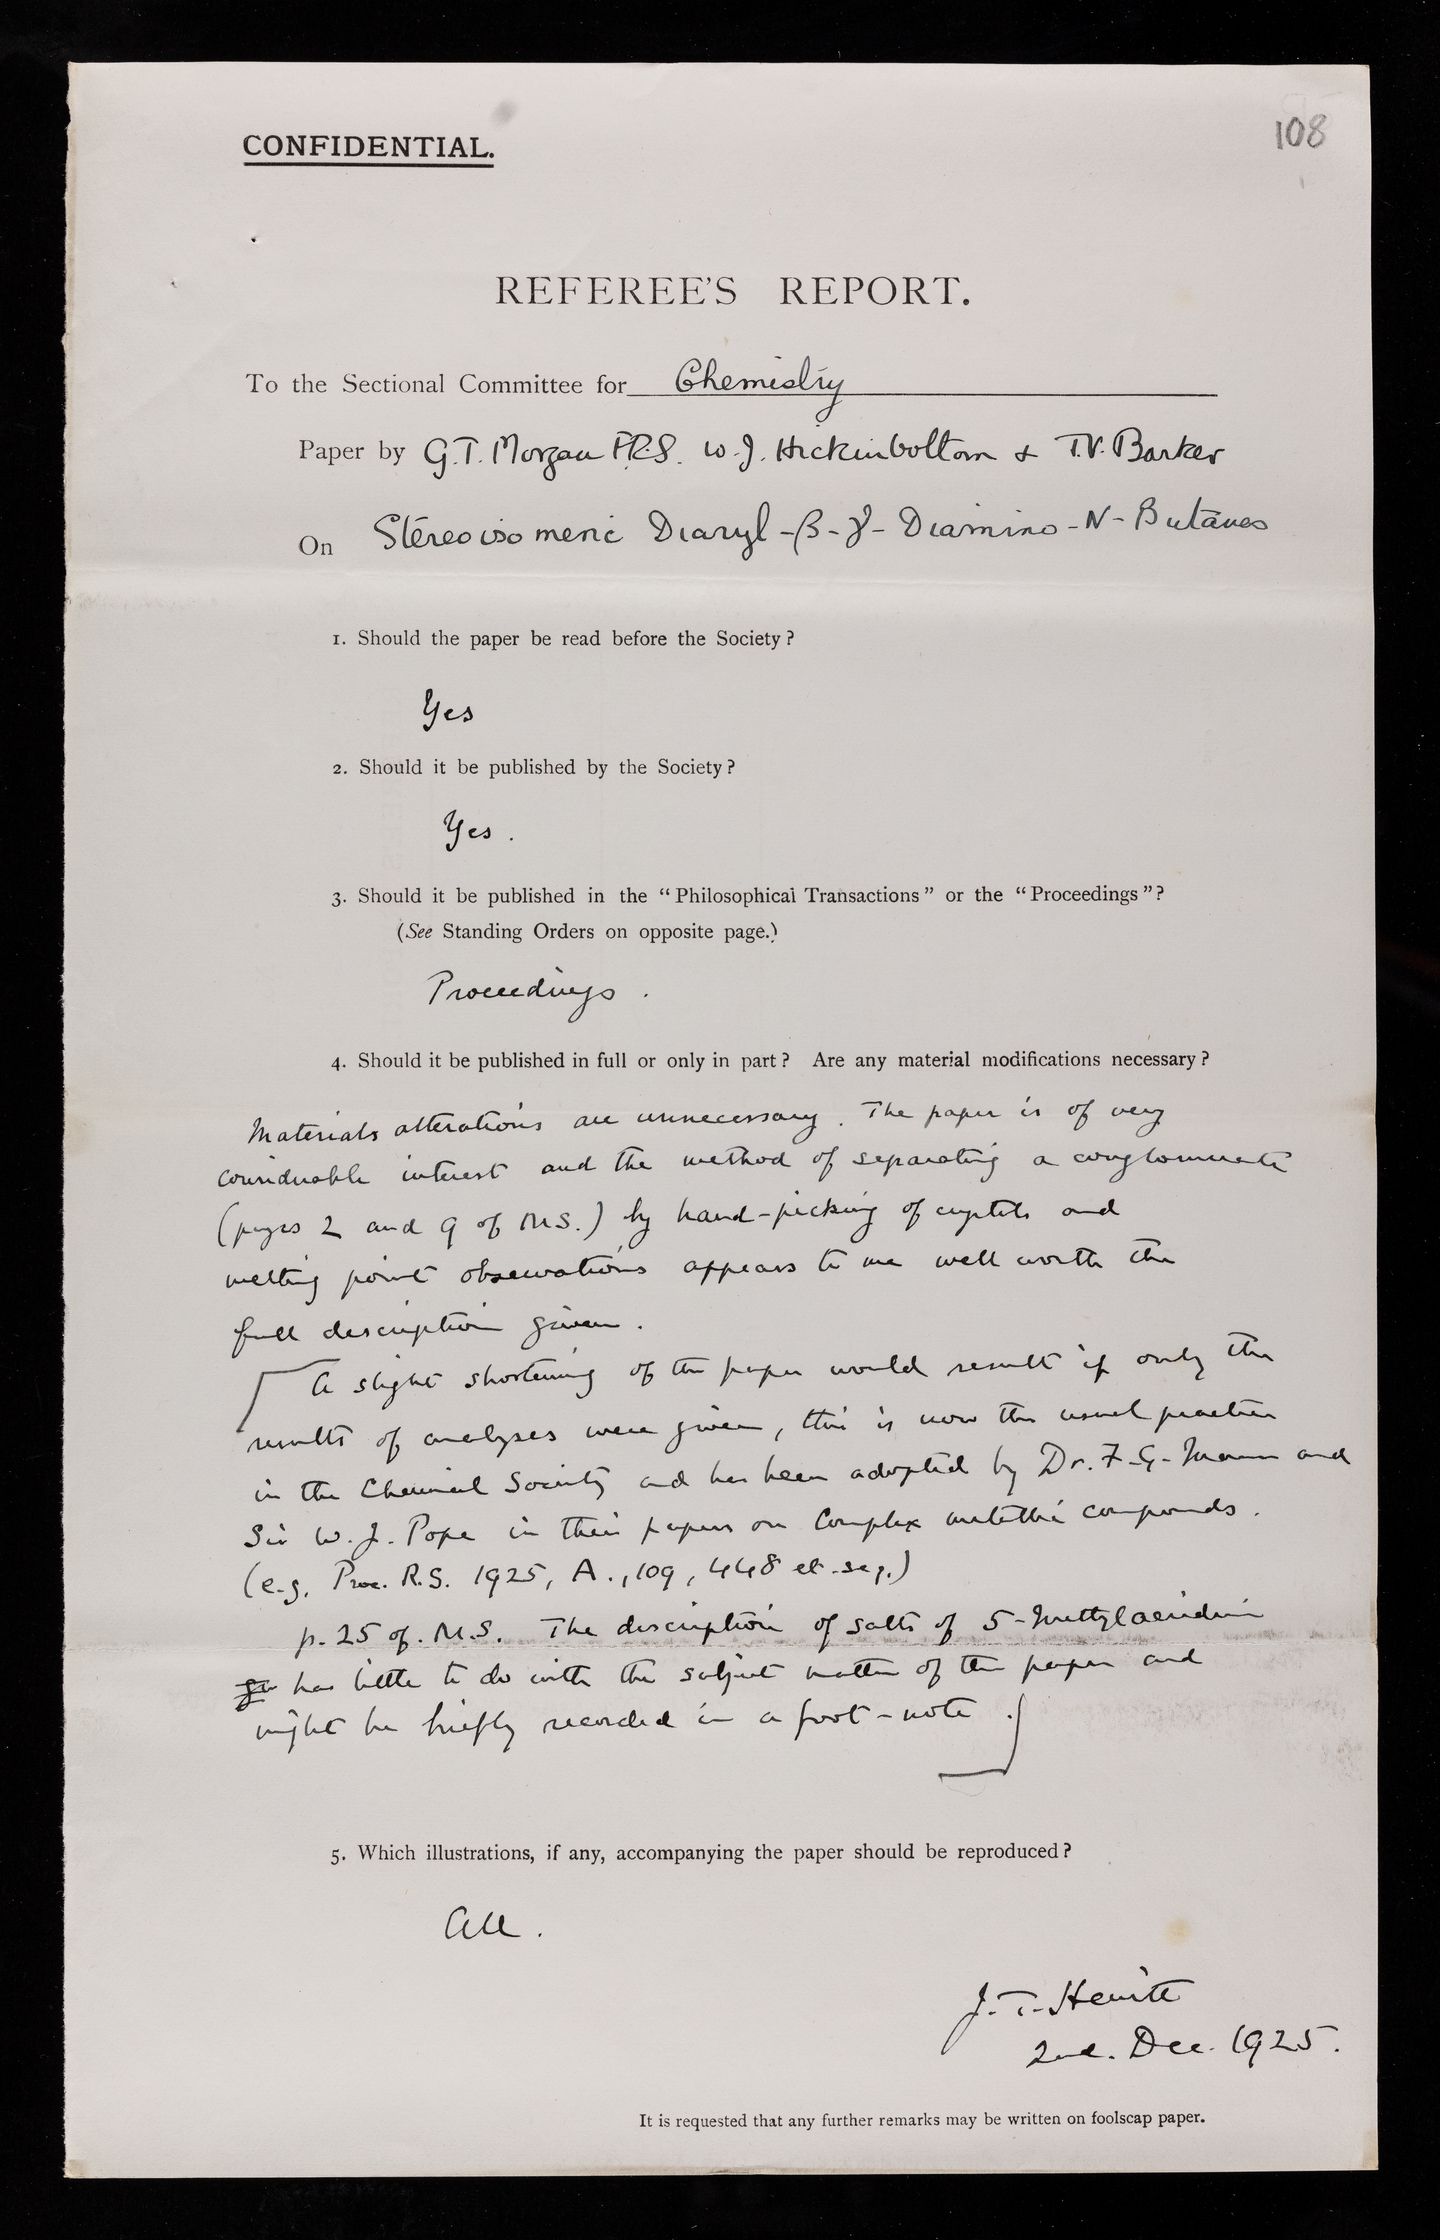 108
CONFIDENTIAL.
REFEREE'S REPORT.
To the Sectional Committee for Chemistry
Paper by G.T. Morgan F.R.S. W.J. Hickinbottom & T.V. Barker
On Stereoisomeric Diaryl-β-γ-Diamino-N-Butanes
1. Should the paper be read before the Society?
Yes
2. Should it be published by the Society?
Yes.
3. Should it be published in the "Philosophical Transactions" or the "Proceedings"?
(See Standing Orders on opposite page.)
Proceedings.
4. Should it be published in full or only in part? Are any material modifications necessary?
Materials alterations are unnecessary. The paper is of very
considerable interest and the method of separating a conglomerate
(pages 2 and 9 of MS.) by hand-picking of crystals and
melting point observations appears to me well worth the
full description given.
A slight shortening of the paper would result if only the
results of analyses were given, this is now the usual practice
in the Chemical Society and has been adopted by Dr. F.G. Mann and
Sir W.J. Pope in their papers on Complex metallic compounds.
(e.g. Proc. R.S. 1925, A., 109, 448 et. seq.)
p. 25 of M.S. The description of salts of 5-methylacridine
has little to do with the subject matter of the paper and
might be briefly recorded in a foot-note.
5. Which illustrations, if any, accompanying the paper should be reproduced?
All.
J.T. Hewitt
2nd. Dec. 1925.
It is requested that any further remarks may be written on foolscap paper.